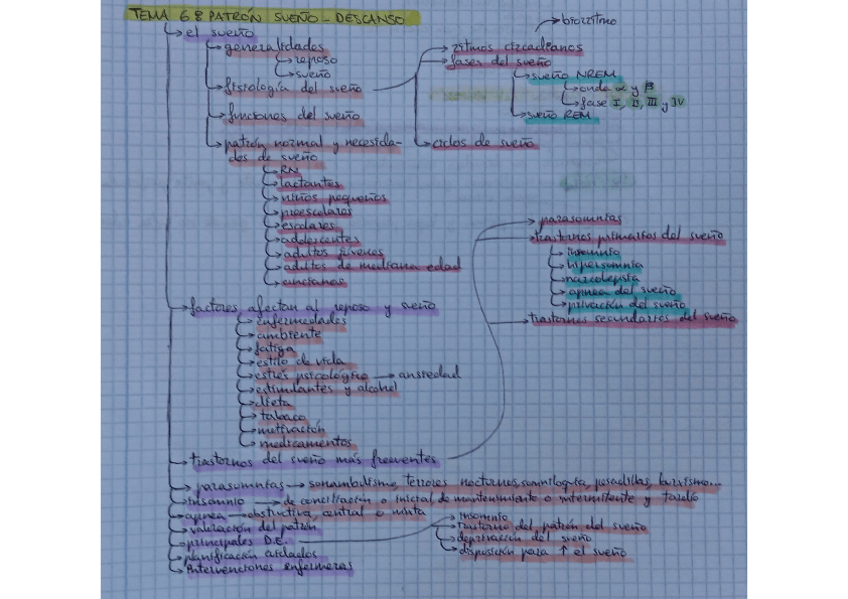 TEMA 6.8 PATRÓN SUEÑO - DESCANSO
el sueño
generalidades
reposo
sueño
fisiología del sueño
ritmos circadianos
biorritmo
fases del sueño
sueño NREM
onda α y β
fase I, II, III y IV
sueño REM
ciclos de sueño
funciones del sueño
patrón normal y necesida-
des de sueño
RN
lactantes
niños pequeños
preescolares
escolares
adolescentes
adultos jóvenes
adultos de mediana edad
ancianos
factores afectan al reposo y sueño
enfermedades
ambiente
fatiga
estilo de vida
estrés psicológico → ansiedad
estimulantes y alcohol
dieta
tabaco
motivación
medicamentos
trastornos del sueño más frecuentes
parasomnias
trastornos primarios del sueño
insomnio
hipersomnia
narcolepsia
apnea del sueño
privación del sueño
trastornos secundarios del sueño
parasomnias → sonambulismo, terrores nocturnos, somniloquia, pesadillas, bruxismo...
insomnio → de conciliación o inicial de mantenimiento o intermitente y tardío
apnea → obstructiva, central o mixta
valoración del patrón
principales D.E.
insomnio
trastorno del patrón del sueño
deprivación del sueño
disposición para ↑ el sueño
planificación cuidados
intervenciones enfermeras